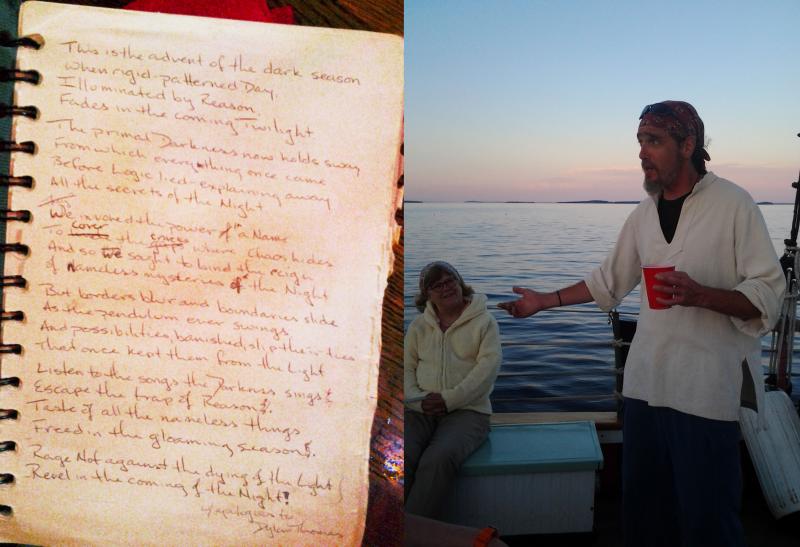 This is the advent of the dark season
When rigid-patterned Day,
Illuminated by Reason
Fades in the coming Twilight
The primal Darkness now holds sway
From which everything once came
Before Logic lied, explaining away
All the secrets of the Night
We invoked the power of a Name
To cover the where Chaos hides
And so we sought to bind the reign
of Nameless mysteries of the Night
But borders blur and boundaries slide
As the pendulum over swings
And possibilities, banished, slip their ties
That once kept them from the Light
Listen to the songs the Darkness sings
Escape the trap of Reason.
Taste of all the nameless things
Freed in the gloaming season.
Rage Not against the dying of the Light
Revel in the coming of the Night!
w/apologies to
Dylan Thomas